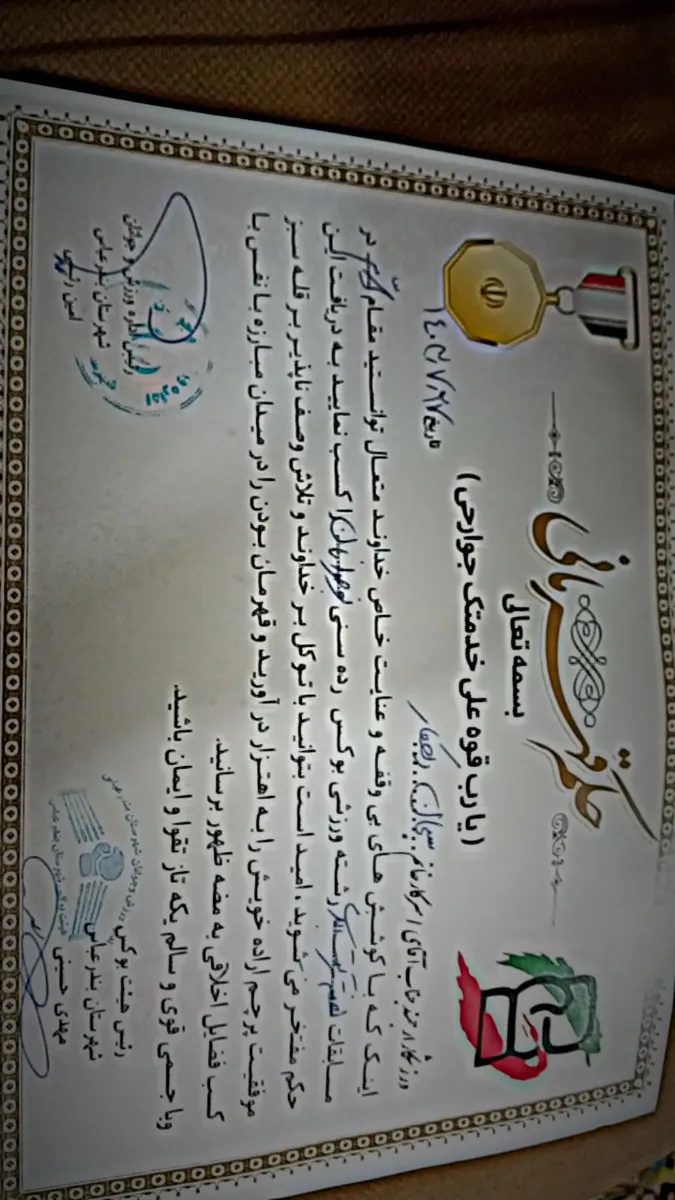 حکم قهرمانی
بسمه تعالی
(یا رب قوه علی خدمتک جوارحی)
تاریخ
ورزشکار ارجمند جناب آقای / سرکار خانم
اینک که با کوشش های بی وقفه و عنایت خاص خداوند متعال توانستید مقام در
مسابقات رشته ورزشی بوکس رده سنی نوجوانان را کسب نمایید به دریافت این
حکم مفتخر می شوید، امید است بتوانید با توکل بر خداوند و تلاش وصف ناپذیر بر قله سبز
موفقیت پرچم اراده خویش را به اهتزار در آورید و قهرمان بودن را در میدان مبارزه با نفس با
کسب فضایل اخلاقی به مضه ظهور برسانید.
وبا جسمی قوی و سالم یکه تاز تقوا و ایمان باشید.
رئیس هیئت بوکس
شهرستان بندرعباس
مهدی حسینی
رئیس اداره ورزش و جوانان
شهرستان بندرعباس
امین